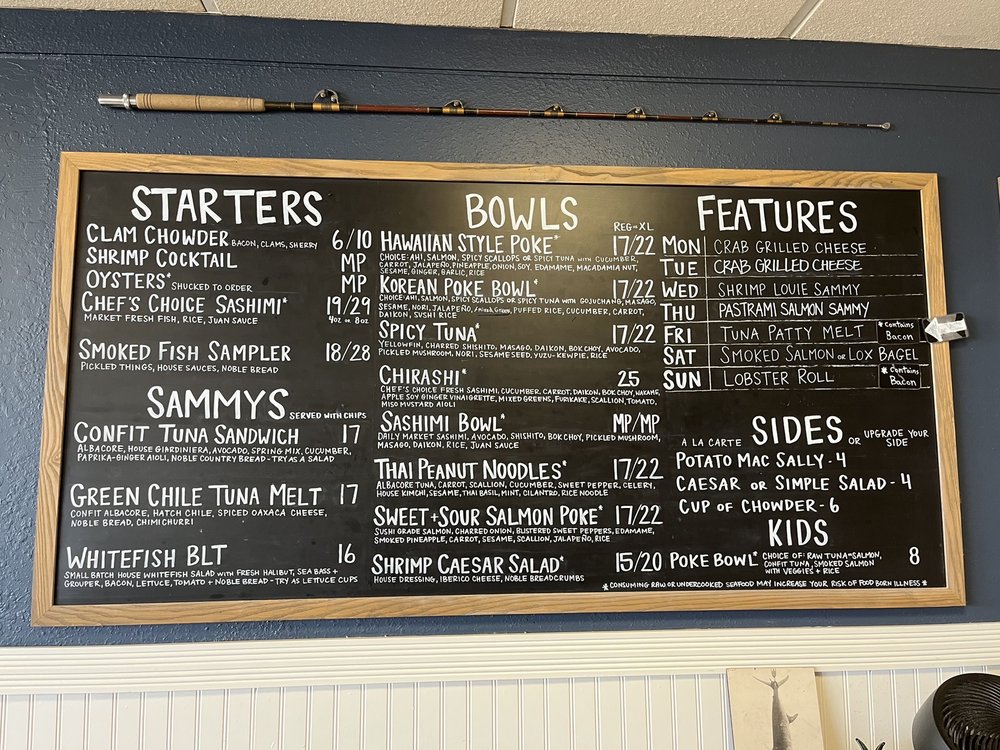 STARTERS
CLAM CHOWDER BACON, CLAMS, SHERRY 6/10
SHRIMP COCKTAIL MP
OYSTERS* SHUCKED TO ORDER MP
CHEF'S CHOICE SASHIMI* 19/29
MARKET FRESH FISH, RICE, JUAN SAUCE 4oz or 8oz
SMOKED FISH SAMPLER 18/28
PICKLED THINGS, HOUSE SAUCES, NOBLE BREAD
SAMMYS SERVED WITH CHIPS
CONFIT TUNA SANDWICH 17
ALBACORE, HOUSE GIARDINIERA, AVOCADO, SPRING MIX, CUCUMBER,
PAPRIKA-GINGER AIOLI, NOBLE COUNTRY BREAD - TRY AS A SALAD
GREEN CHILE TUNA MELT 17
CONFIT ALBACORE, HATCH CHILE, SPICED OAXACA CHEESE,
NOBLE BREAD, CHIMICHURRI
WHITEFISH BLT 16
SMALL BATCH HOUSE WHITEFISH SALAD WITH FRESH HALIBUT, SEA BASS +
GROUPER, BACON, LETTUCE, TOMATO + NOBLE BREAD - TRY AS LETTUCE CUPS
BOWLS
REG - XL
HAWAIIAN STYLE POKE* 17/22
CHOICE: AHI, SALMON, SPICY SCALLOPS OR SPICY TUNA WITH CUCUMBER,
CARROT, JALAPEÑO, PINEAPPLE, ONION, SOY, EDAMAME, MACADAMIA NUT,
SESAME, GINGER, GARLIC, RICE
KOREAN POKE BOWL* 17/22
CHOICE: AHI, SALMON, SPICY SCALLOPS OR SPICY TUNA WITH GOJUCHANG, MASAGO,
SESAME, NORI, JALAPEÑO, Mixed Greens, PUFFED RICE, CUCUMBER, CARROT,
DAIKON, SUSHI RICE
SPICY TUNA* 17/22
YELLOWFIN, CHARRED SHISHITO, MASAGO, DAIKON, BOK CHOY, AVOCADO,
PICKLED MUSHROOM, NORI, SESAME SEED, YUZU-KEWPIE, RICE
CHIRASHI* 25
CHEF'S CHOICE FRESH SASHIMI, CUCUMBER, CARROT, DAIKON, BOK CHOY, WAKAME,
APPLE SOY GINGER VINAIGRETTE, MIXED GREENS, FURIKAKE, SCALLION, TOMATO,
MISO MUSTARD AIOLI
SASHIMI BOWL* MP/MP
DAILY MARKET SASHIMI, AVOCADO, SHISHITO, BOK CHOY, PICKLED MUSHROOM,
MASAGO, DAIKON, RICE, JUAN SAUCE
THAI PEANUT NOODLES* 17/22
ALBACORE TUNA, CARROT, SCALLION, CUCUMBER, SWEET PEPPER, CELERY,
HOUSE KIMCHI, SESAME, THAI BASIL, MINT, CILANTRO, RICE NOODLE
SWEET + SOUR SALMON POKE* 17/22
SUSHI GRADE SALMON, CHARRED ONION, BLISTERED SWEET PEPPERS, EDAMAME,
SMOKED PINEAPPLE, CARROT, SESAME, SCALLION, JALAPEÑO, RICE
SHRIMP CAESAR SALAD* 15/20
HOUSE DRESSING, IBERICO CHEESE, NOBLE BREADCRUMBS
FEATURES
MON CRAB GRILLED CHEESE
TUE CRAB GRILLED CHEESE
WED SHRIMP LOUIE SAMMY
THU PASTRAMI SALMON SAMMY
FRI TUNA PATTY MELT *Contains Bacon
SAT SMOKED SALMON OR LOX BAGEL
SUN LOBSTER ROLL *Contains Bacon
A LA CARTE SIDES OR UPGRADE YOUR SIDE
POTATO MAC SALLY - 4
CAESAR OR SIMPLE SALAD - 4
CUP OF CHOWDER - 6
KIDS
POKE BOWL* CHOICE OF: RAW TUNA-SALMON, 8
CONFIT TUNA, SMOKED SALMON
WITH VEGGIES + RICE
* CONSUMING RAW OR UNDERCOOKED SEAFOOD MAY INCREASE YOUR RISK OF FOOD BORN ILLNESS *